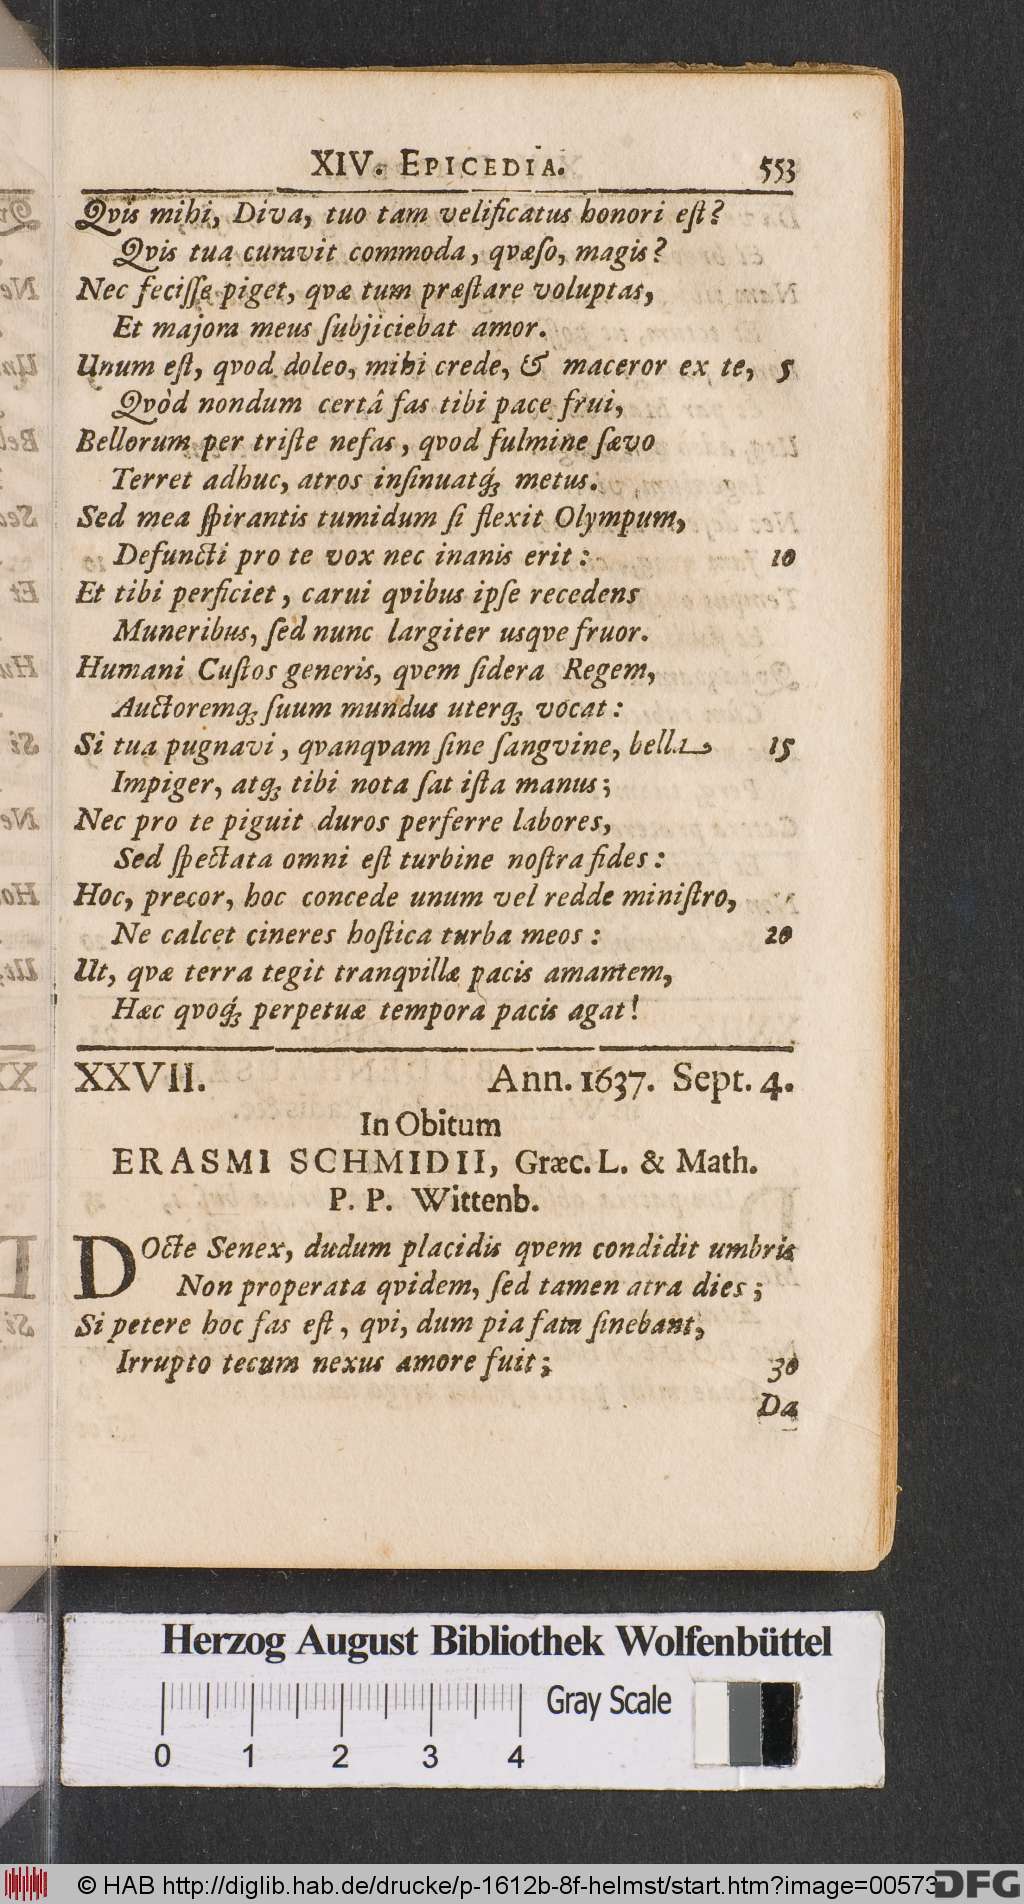 XIV. EPICEDIA. 553
Qvis mihi, Diva, tuo tam velificatus honori eſt?
Qvis tua curavit commoda, qvæſo, magis?
Nec feciſſe piget, qvæ tum præſtare voluptas,
Et majora meus ſubjiciebat amor.
Unum eſt, qvod doleo, mihi crede, & maceror ex te, 5
Qvòd nondum certâ fas tibi pace frui,
Bellorum per triſte nefas, qvod fulmine ſævo
Terret adhuc, atros inſinuatq́ꝫ metus.
Sed mea ſpirantis tumidum ſi flexit Olympum,
Defuncti pro te vox nec inanis erit: 10
Et tibi perficiet, carui qvibus ipſe recedens
Muneribus, ſed nunc largiter usqve fruor.
Humani Cuſtos generis, qvem ſidera Regem,
Auctoremqꝫ ſuum mundus uterqꝫ vocat:
Si tua pugnavi, qvanqvam ſine ſangvine, bella 15
Impiger, atqꝫ tibi nota ſat iſta manus;
Nec pro te piguit duros perferre labores,
Sed ſpectata omni eſt turbine noſtra fides:
Hoc, precor, hoc concede unum vel redde miniſtro,
Ne calcet cineres hoſtica turba meos: 20
Ut, qvæ terra tegit tranqvillæ pacis amantem,
Hæc qvoq́ꝫ perpetuæ tempora pacis agat!
XXVII. Ann. 1637. Sept. 4.
In Obitum
ERASMI SCHMIDII, Græc. L. & Math.
P. P. Wittenb.
DOcte Senex, dudum placidis qvem condidit umbris
Non properata qvidem, ſed tamen atra dies;
Si petere hoc fas eſt, qvi, dum pia fata ſinebant,
Irrupto tecum nexus amore fuit; 30
Da
Herzog August Bibliothek Wolfenbüttel
Gray Scale
0 1 2 3 4
© HAB http://diglib.hab.de/drucke/p-1612b-8f-helmst/start.htm?image=00573
DFG